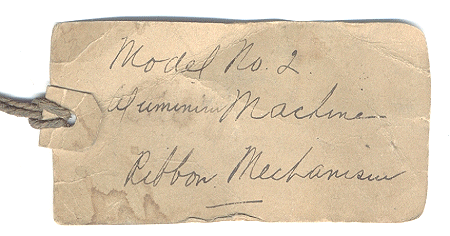 Model No. 2
Aluminim Machine
Ribbon Mechanism